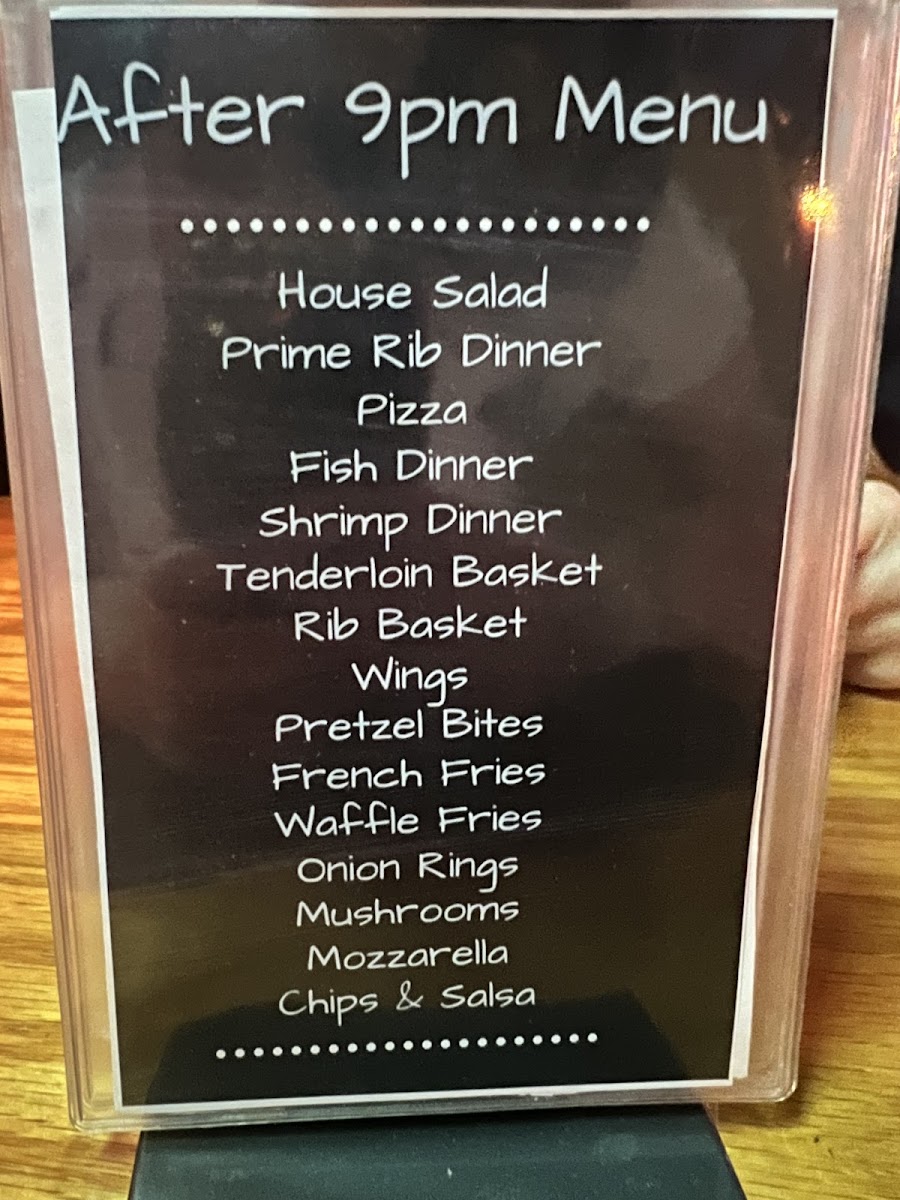 After 9pm Menu
House Salad
Prime Rib Dinner
Pizza
Fish Dinner
Shrimp Dinner
Tenderloin Basket
Rib Basket
Wings
Pretzel Bites
French Fries
Waffle Fries
Onion Rings
Mushrooms
Mozzarella
Chips & Salsa